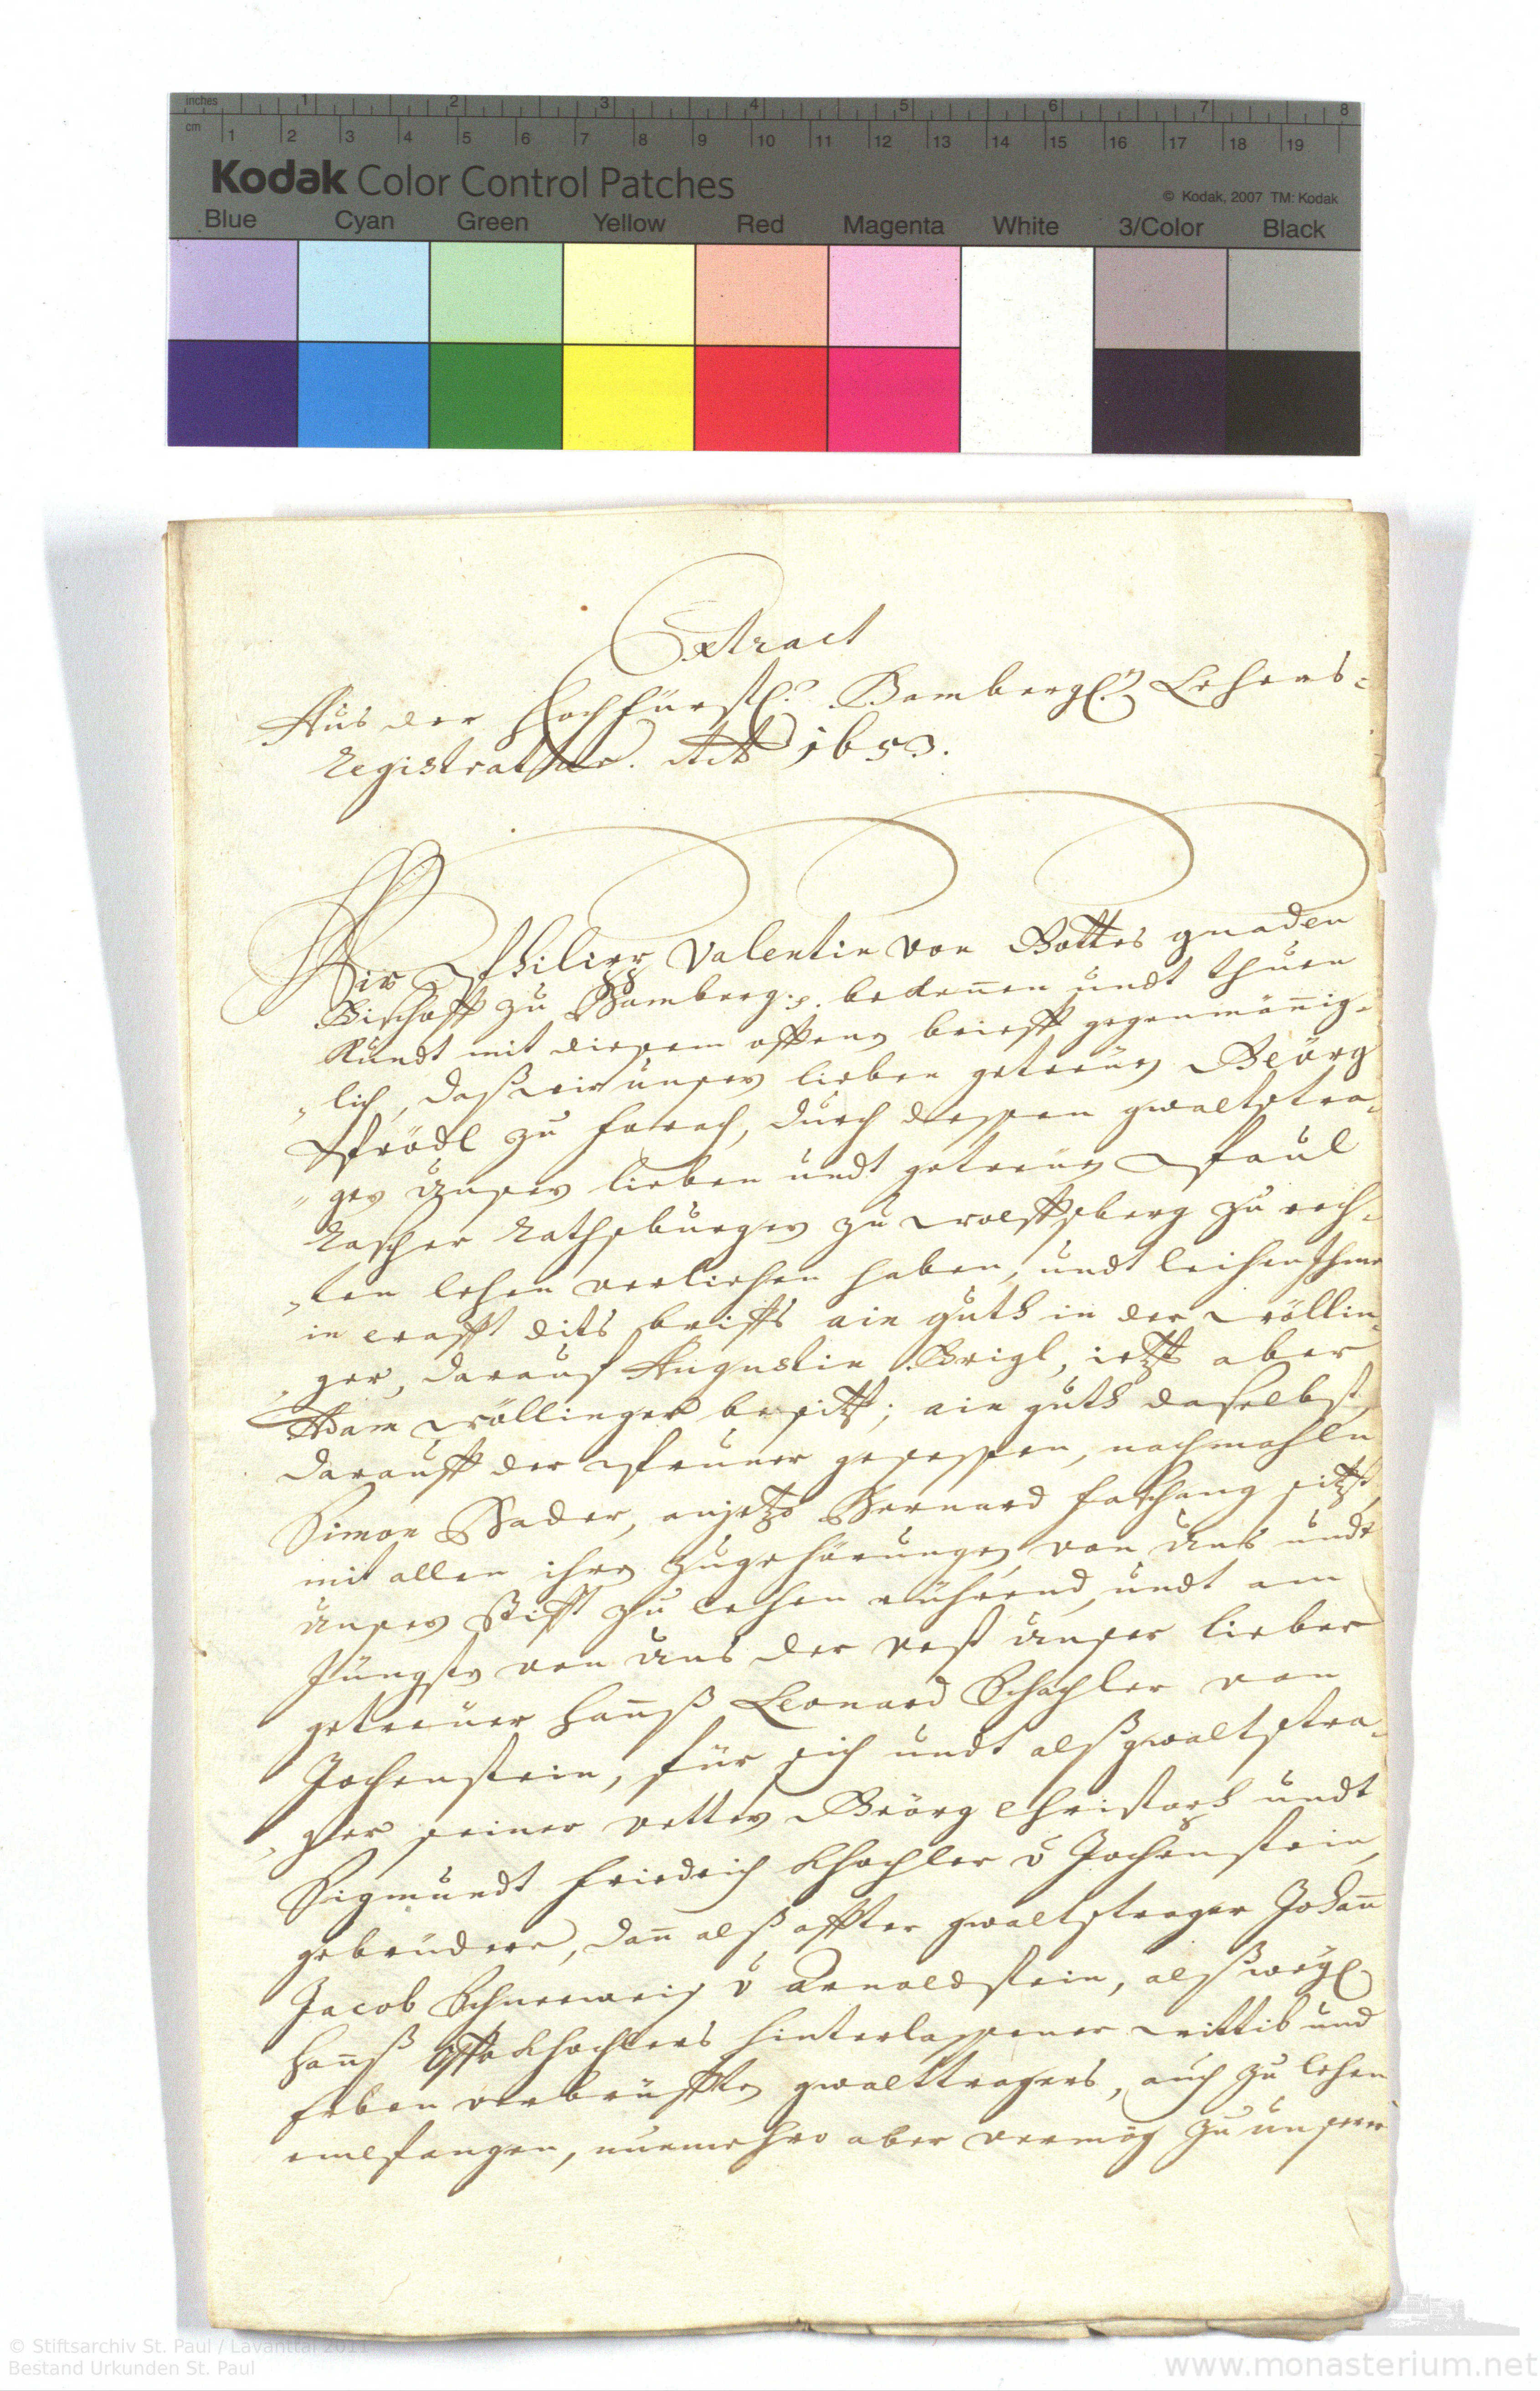 inches 1 2 3 4 5 6 7 8
cm 1 2 3 4 5 6 7 8 9 10 11 12 13 14 15 16 17 18 19
Kodak Color Control Patches © Kodak, 2007 TM: Kodak
Blue Cyan Green Yellow Red Magenta White 3/Color Black
Extract
Aus der Hochfürstl: Bambergl: Lehens-
Registratur. 1653.
Wir Philipp Valentin von Gottes gnaden
Bischoff zu Bamberg: bekennen undt thuen
Kundt mit diesem offenen brieff gegen mäniig-
lich, daß wir unsern lieben getreuen Geörg
Pfrödl zu farrach, durch dessen gwaltstra-
ger Unsern lieben undt getreuen Paul
Rascher Rathsburger zu Wolffsberg zu rech-
ten lehen verliehen haben, undt leihen Ihme
in crafft dits brieffs ain guth in der Wöllin-
ger, darauf Augustin Brigl, ietzt aber
Adam Wöllinger besitzt; ain guth daselbst,
darauff der gesessen, nachmahln
Simon Bader, anjetzo Bernard faschang sitzt,
mit allen ihren Zugehörungen, von Uns undt
Unsern Stifft zu lehen rührend, undt am
Jüngsten von Uns der vest Unser lieber
getreuer Hannß Leonard Khachler von
Jochenstein, für sich undt alß gwaltstra-
ger seiner vettern Geörg Christoph undt
Sigmundt Friedrich Khachler v Jochenstein,
gebrüdere, dan alß affter gwaltstrager Johan
Jacob Schneeweis v Arnoldstein, alß weyl
Hannß Khachlers hinterlassener wittib und
Erben gwalttragers, auch zu lehen
empfangen, nunmehro aber vermög zu unserer
© Stiftsarchiv St. Paul / Lavanttal 2011
Bestand Urkunden St. Paul
www.monasterium.net